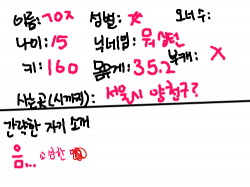 이름: ㄱㅇㅈ 성별: 여 오너수:
나이: 15 닉네임: 뮤샹턴
키: 160 몸무게: 35.2 부캐: X
사는곳(시까지): 서울시 양천구?
간략한 자기 소개
음... 소심한